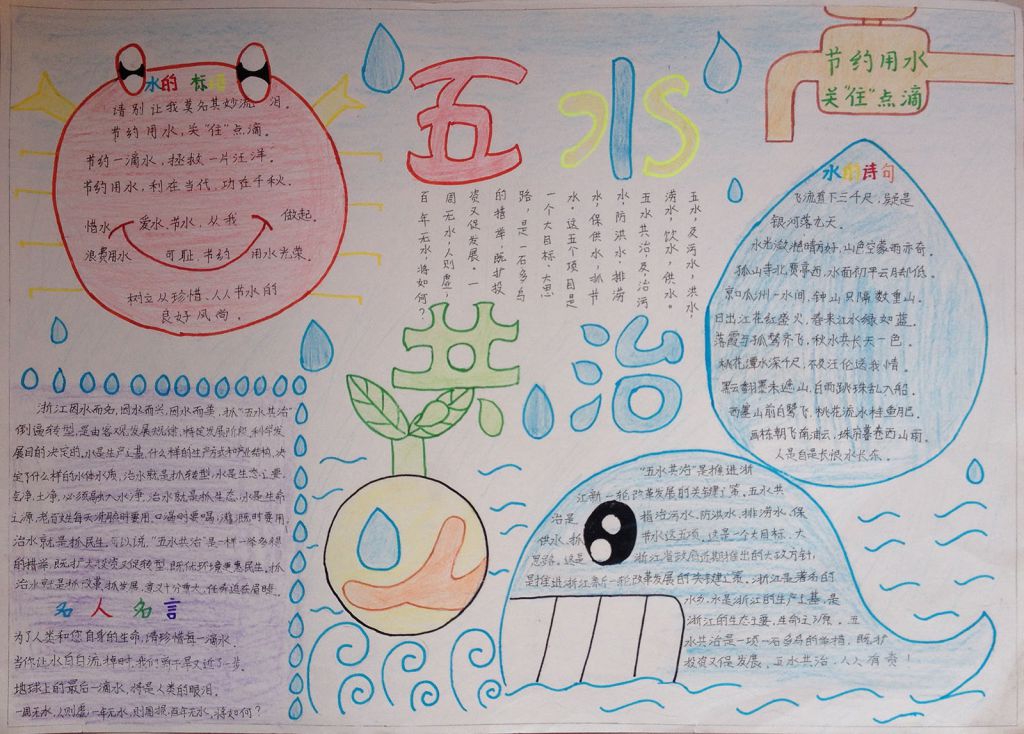 五水共治
节约用水
关“住”点滴
水的标语
请别让我莫名其妙流泪。
节约用水，关“住”点滴。
节约一滴水，拯救一片汪洋。
节约用水，利在当代，功在千秋。
惜水、爱水、节水，从我做起。
浪费用水可耻，节约用水光荣。
树立从珍惜、人人节水的
良好风尚。
五水，及污水，洪水，
涝水，饮水，供水。
五水共治，及，治污
水，防洪水，排涝
水，保供水，抓节
水。这五个项目是
一个大目标、大思
路，是一石多鸟
的措举，既扩投
资又促发展。一
周无水，人则虚，
百年无水，将如何？
水的诗句
飞流直下三千尺，疑是
银河落九天。
水光潋滟晴方好，山色空蒙雨亦奇。
孤山寺北贾亭西，水面初平云脚低。
京口瓜州一水间，钟山只隔数重山。
日出江花红盛火，春来江水绿如蓝。
落霞与孤鹜齐飞，秋水共长天一色。
桃花潭水深千尺，不及汪伦送我情。
黑云翻墨未遮山，白雨跳珠乱入船。
西塞山前白鹭飞，桃花流水桂鱼肥。
画栋朝飞南浦云，珠帘暮卷西山雨。
人是自是长恨水长东。
浙江因水而名，因水而兴，因水而美，抓“五水共治”
倒逼转型，是由客观发展规律，特定发展阶段，科学发
展目的决定的。水是生产之基，什么样的生产方式和产业结构，决
定了什么样的水体水质，治水就是抓转型，水是生态之要，
气净，土净，必须融入水净，治水就是抓生态，水是生命
之源，老百姓每天洗脸时要用，口渴时要喝，灌溉时要用，
治水就是抓民生。可以说，“五水共治”是一样一举多得
的措举，既扩大投资又促转型，既优环境更惠民生，抓
治水就是抓改革，抓发展，意义十分重大，任务迫在眉睫。
名人名言
为了人类和您自身的生命，请珍惜每一滴水。
当你让水白白流掉时，我们
地球上的最后一滴水，将是人类的眼泪。
一周无水，人则虚，一年无水，则周损，百年无水，将如何？
“五水共治”是推进浙
江新一轮改革发展的关键之策。五水共
治是指治污水，防洪水，排涝水，保
供水，抓节水这五项，这是一个大目标、大
思路，这是浙江省政府近期推出的大政方针，
是推进浙江新一轮改革发展的关键之策。浙江是著名的
水乡，水是浙江的生产之基，是
浙江的生态之要，生命之源。五
水共治是一项一石多鸟的举措，既扩
投资又促发展，五水共治，人人有责！